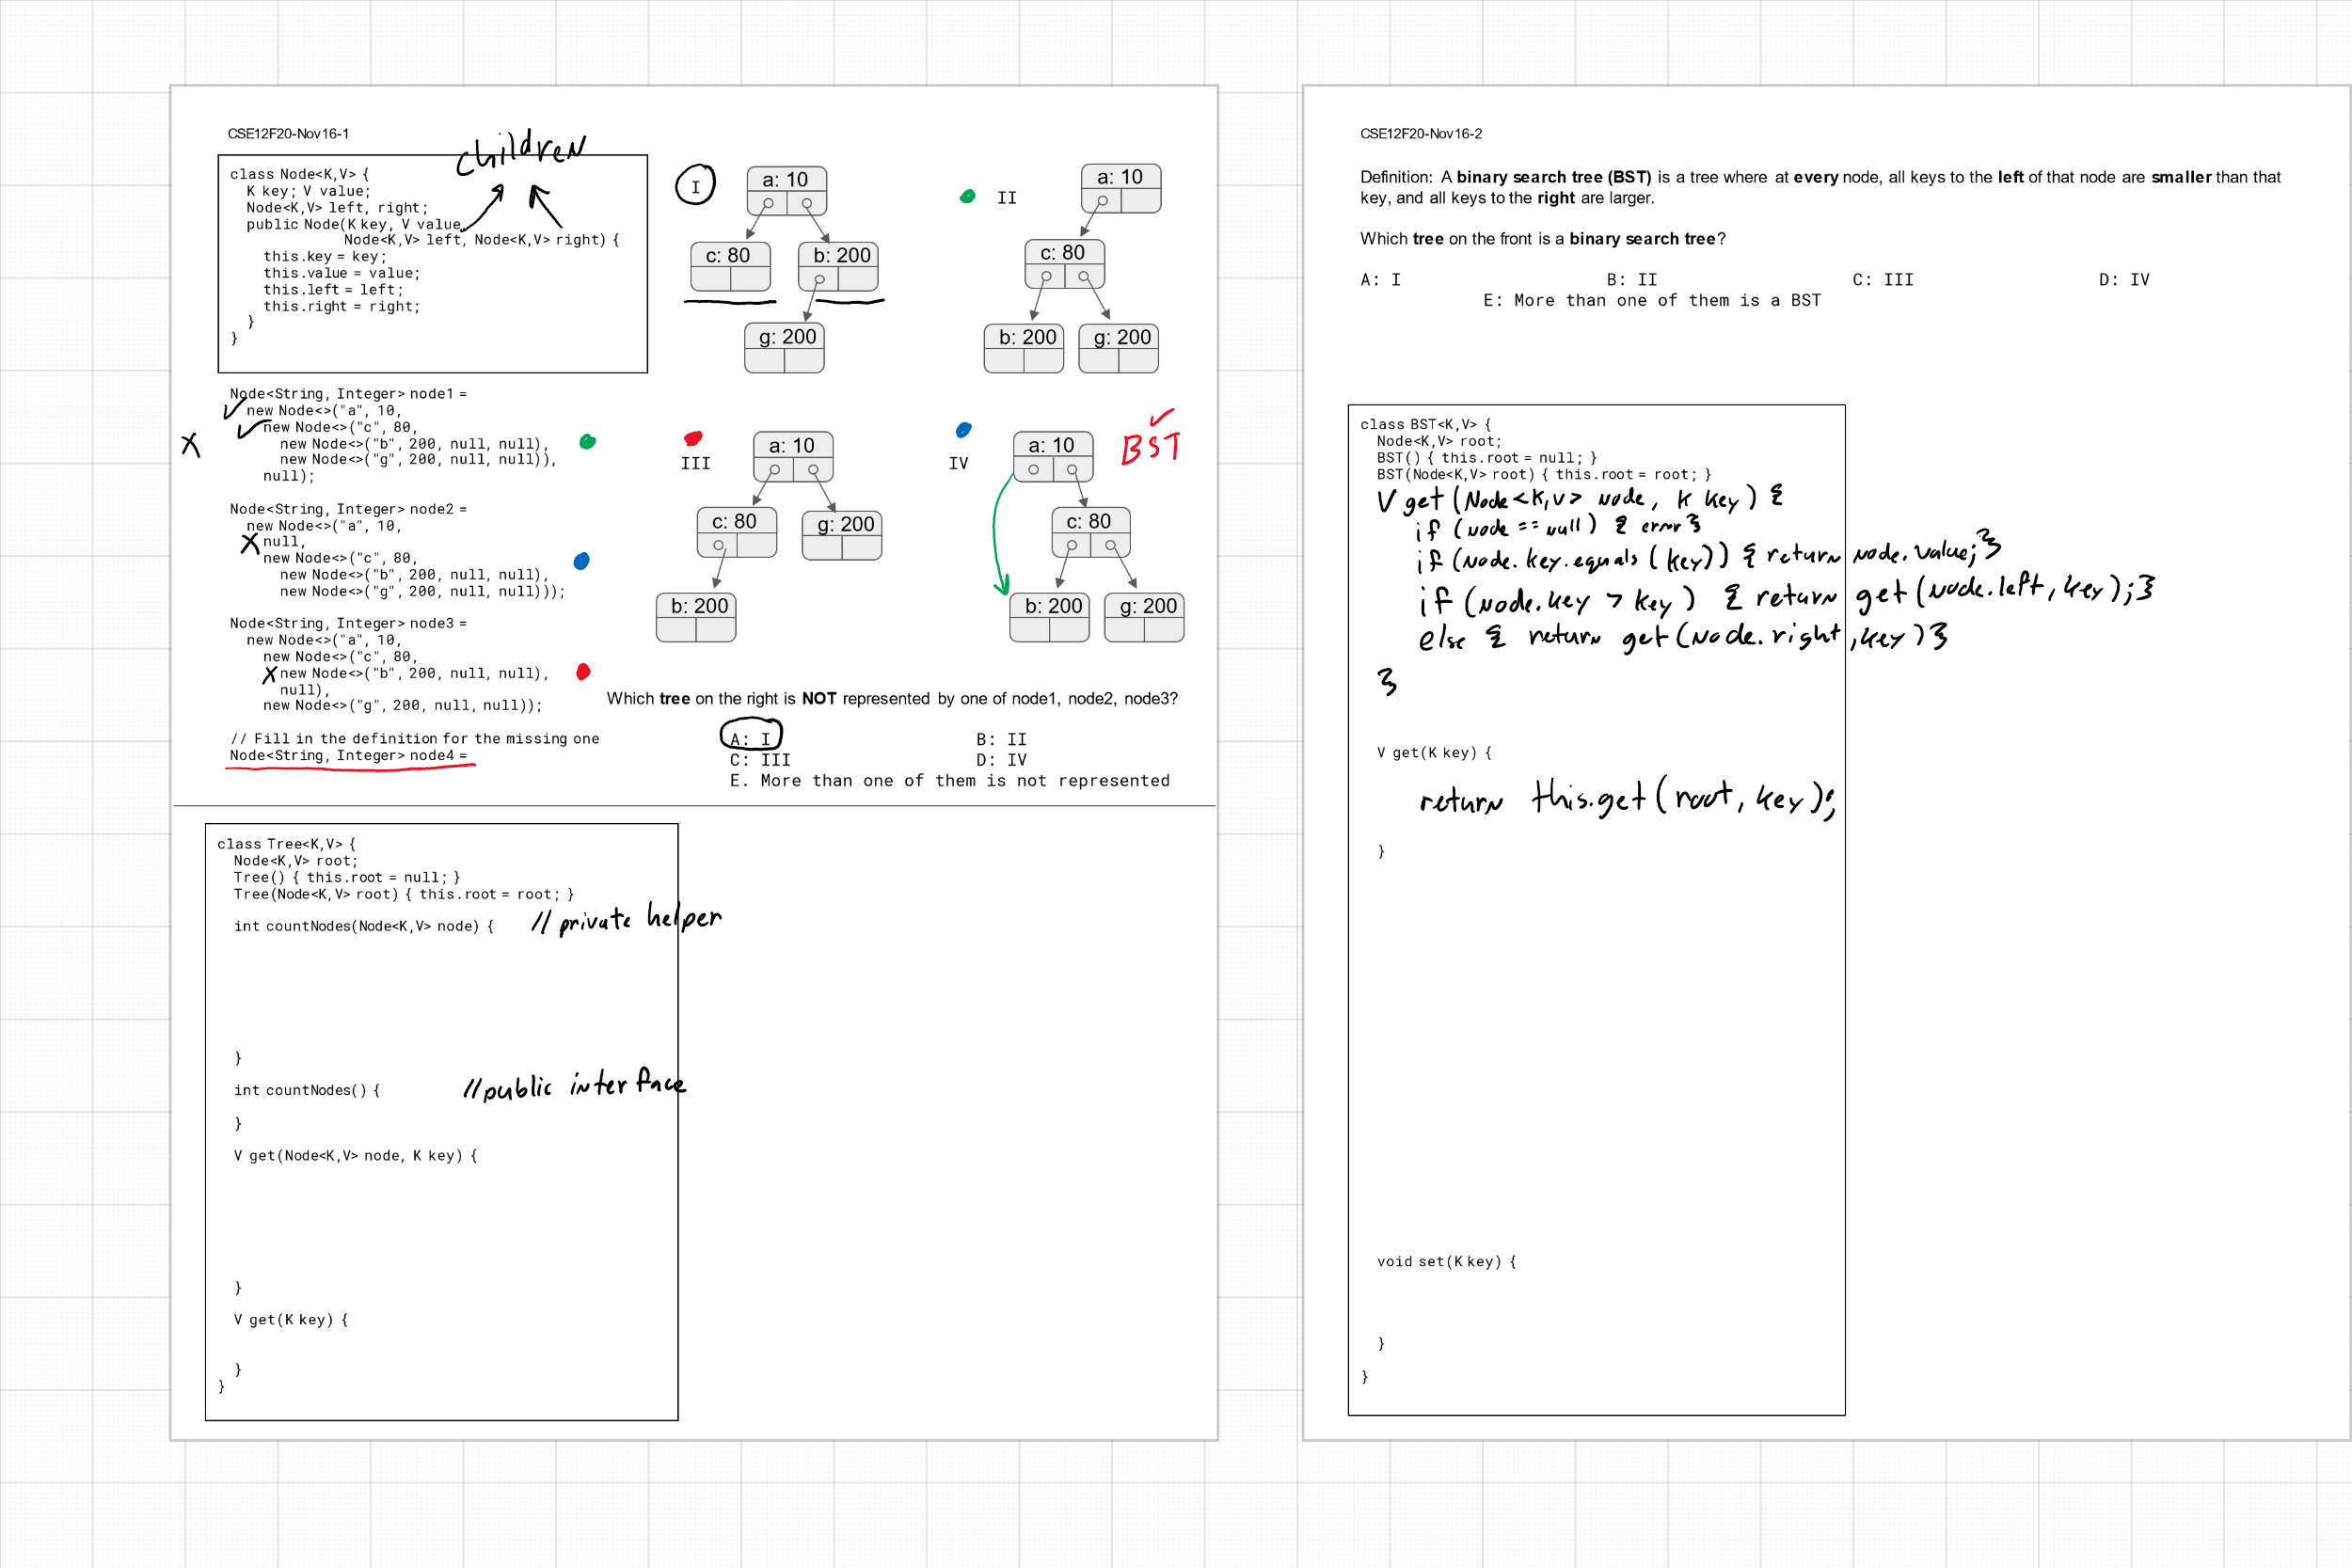 CSE12F20-Nov16-1
children
class Node<K,V> {
K key; V value;
Node<K,V> left, right;
public Node(K key, V value,
Node<K,V> left, Node<K,V> right) {
this.key = key;
this.value = value;
this.left = left;
this.right = right;
}
}
Node<String, Integer> node1 =
new Node<>("a", 10,
new Node<>("c", 80,
new Node<>("b", 200, null, null),
new Node<>("g", 200, null, null)),
null);
X
Node<String, Integer> node2 =
new Node<>("a", 10,
X null,
new Node<>("c", 80,
new Node<>("b", 200, null, null),
new Node<>("g", 200, null, null)));
Node<String, Integer> node3 =
new Node<>("a", 10,
new Node<>("c", 80,
X new Node<>("b", 200, null, null),
null),
new Node<>("g", 200, null, null));
// Fill in the definition for the missing one
Node<String, Integer> node4 =
I
a: 10
c: 80
b: 200
g: 200
II
a: 10
c: 80
b: 200
g: 200
III
a: 10
c: 80
g: 200
b: 200
IV
a: 10
BST
c: 80
b: 200
g: 200
Which tree on the right is NOT represented by one of node1, node2, node3?
A: I
B: II
C: III
D: IV
E. More than one of them is not represented
class Tree<K,V> {
Node<K,V> root;
Tree() { this.root = null; }
Tree(Node<K,V> root) { this.root = root; }
int countNodes(Node<K,V> node) { // private helper
}
int countNodes() { // public interface
}
V get(Node<K,V> node, K key) {
}
V get(K key) {
}
}
CSE12F20-Nov16-2
Definition: A binary search tree (BST) is a tree where at every node, all keys to the left of that node are smaller than that
key, and all keys to the right are larger.
Which tree on the front is a binary search tree?
A: I B: II C: III D: IV
E: More than one of them is a BST
class BST<K,V> {
Node<K,V> root;
BST() { this.root = null; }
BST(Node<K,V> root) { this.root = root; }
V get (Node<K,V> node, K key) {
if (node == null) { error }
if (node.key.equals(key)) { return node.value; }
if (node.key > key) { return get(node.left, key); }
else { return get(node.right, key) }
}
V get(K key) {
return this.get(root, key);
}
void set(K key) {
}
}